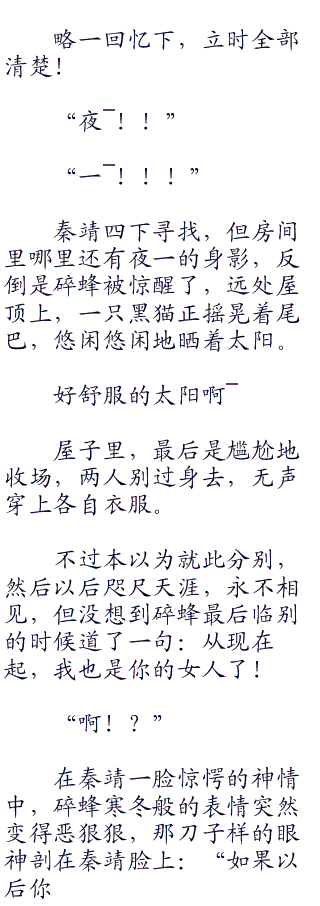 略一回忆下，立时全部
清楚！
“夜¯！！”
“一¯！！！”
秦靖四下寻找，但房间
里哪里还有夜一的身影，反
倒是碎蜂被惊醒了，远处屋
顶上，一只黑猫正摇晃着尾
巴，悠闲悠闲地晒着太阳。
好舒服的太阳啊¯
屋子里，最后是尴尬地
收场，两人别过身去，无声
穿上各自衣服。
不过本以为就此分别，
然后以后咫尺天涯，永不相
见，但没想到碎蜂最后临别
的时候道了一句：从现在
起，我也是你的女人了！
“啊！？”
在秦靖一脸惊愕的神情
中，碎蜂寒冬般的表情突然
变得恶狠狠，那刀子样的眼
神剖在秦靖脸上：“如果以
后你